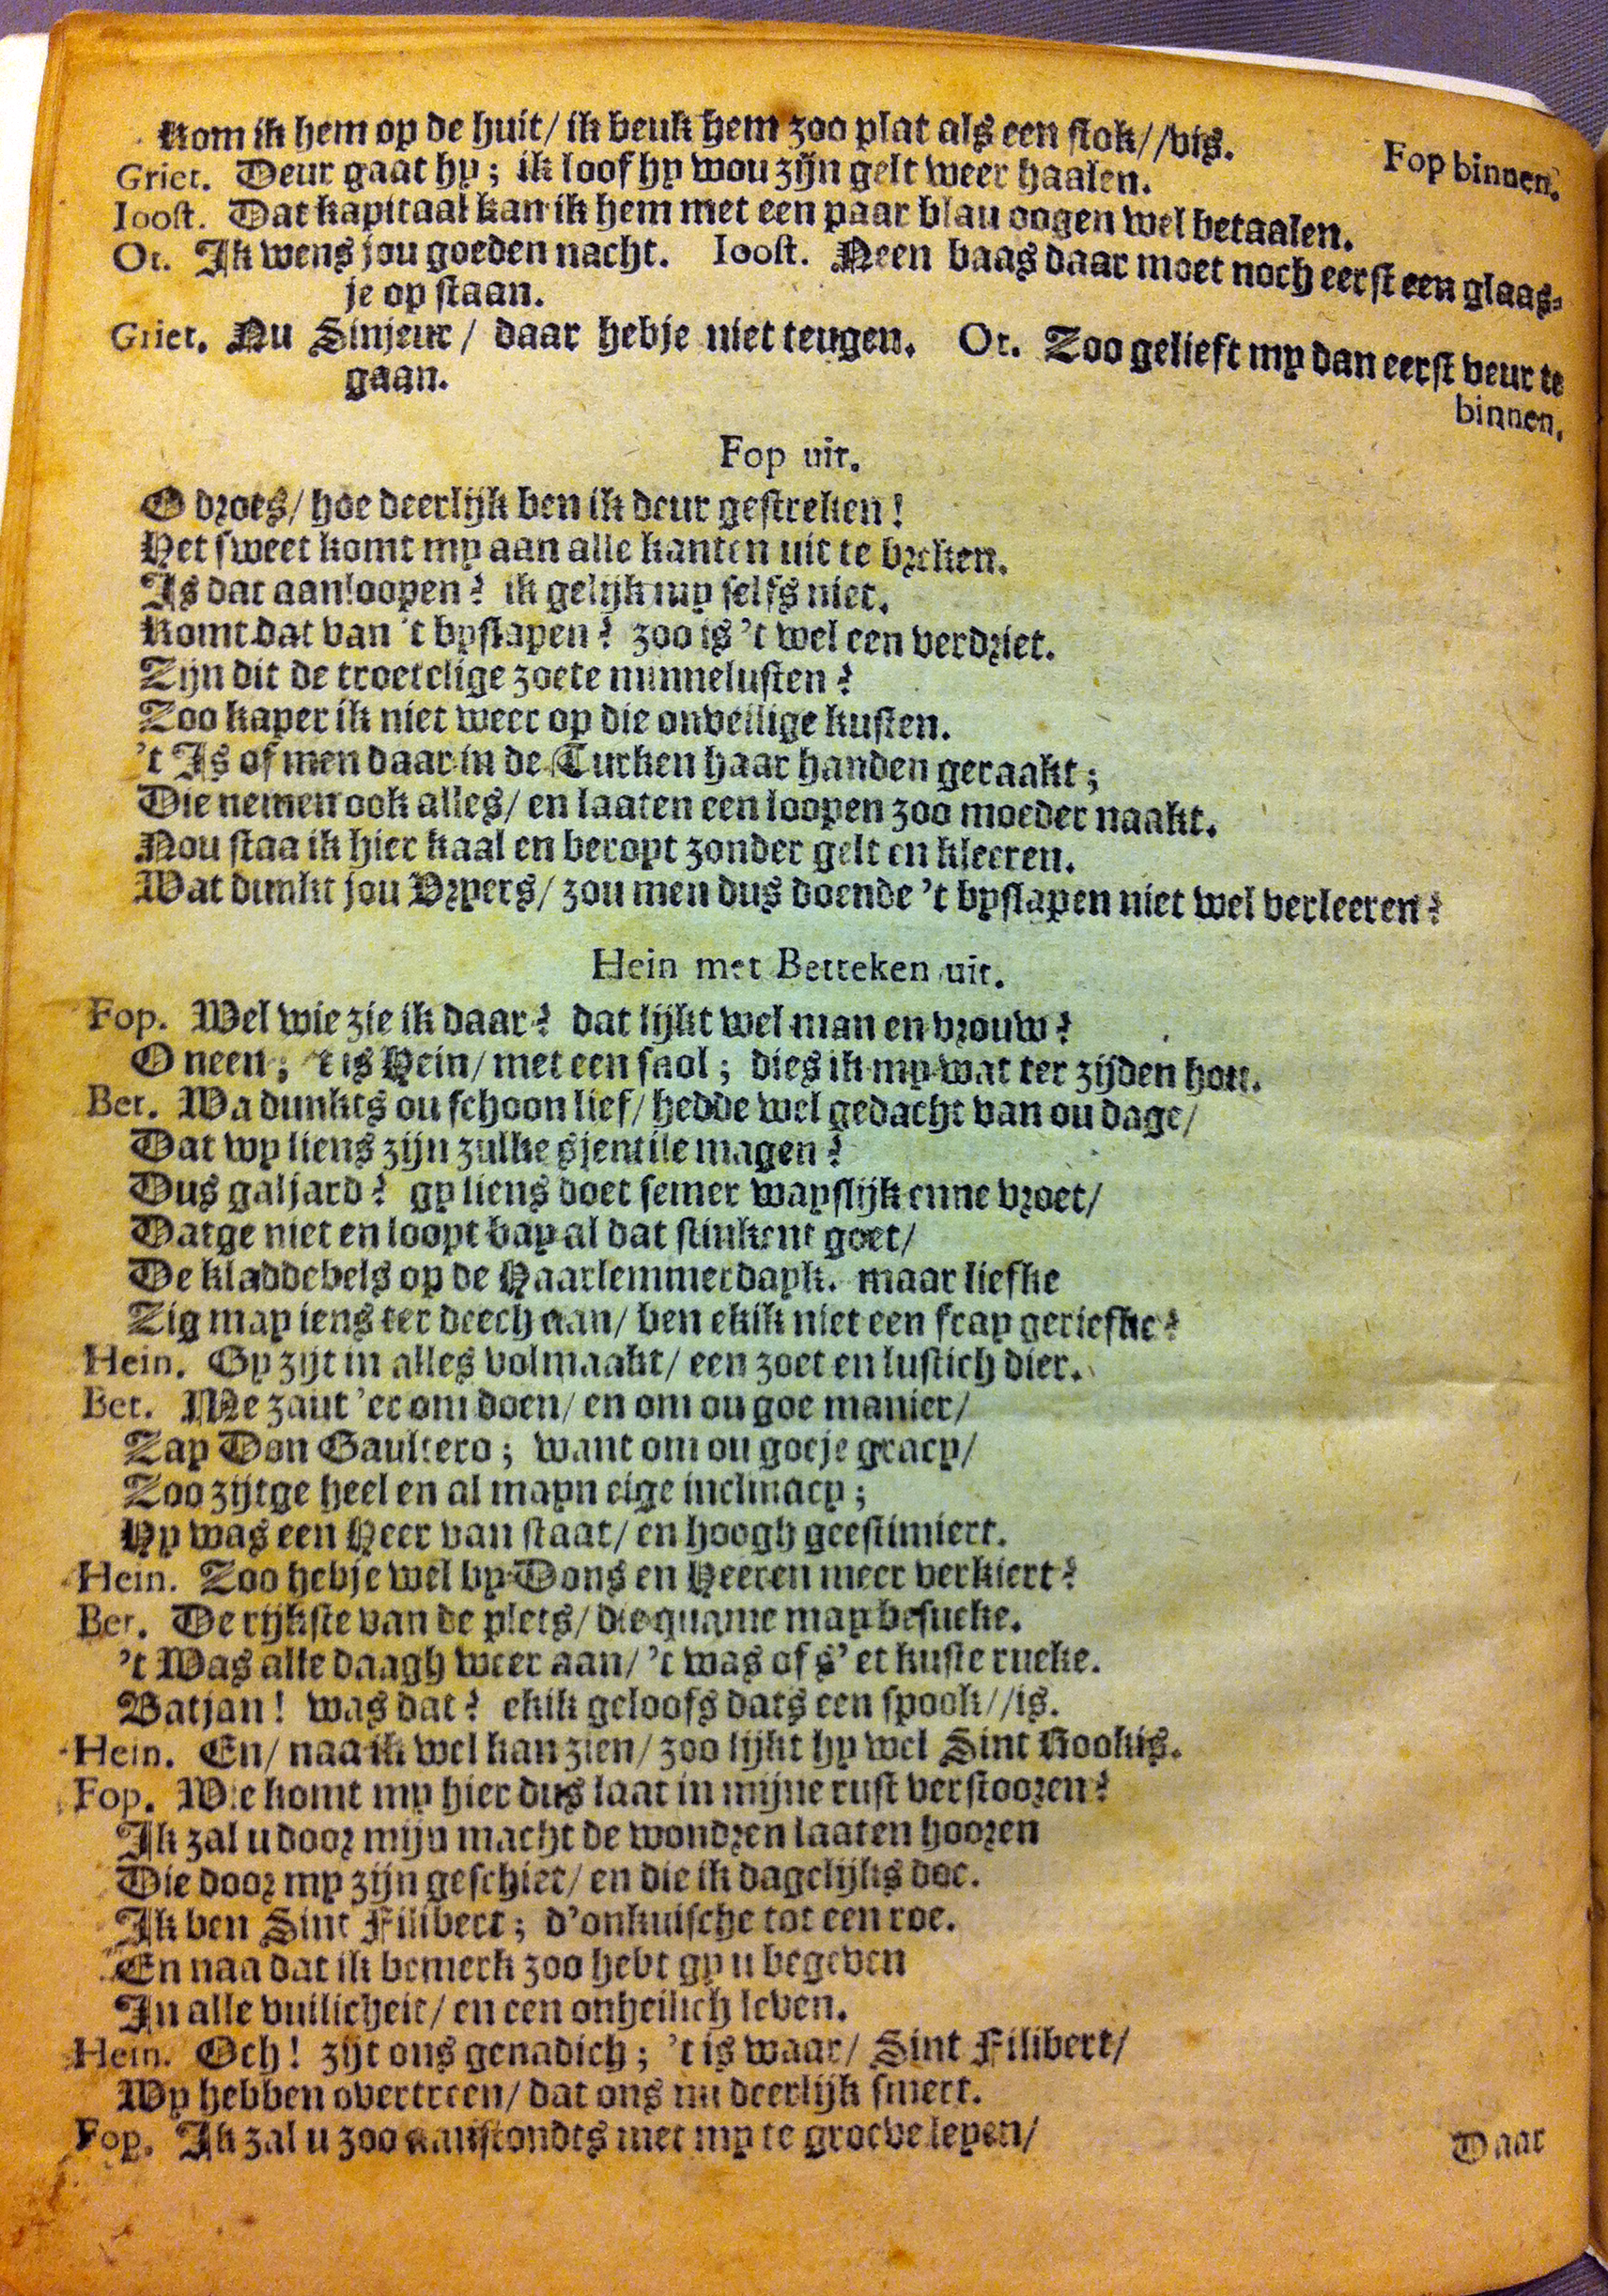 Kom ik hem op de huit/ ik beuk hem zoo plat als een stok//vis.
Fop binnen.
Griet. Deur gaat hy; ik loof hy wou zijn gelt weer haalen.
Ioost. Dat kapitaal kan ik hem met een paar blau oogen wel betaalen.
Ot. Ik wens jou goeden nacht. Ioost. Neen baas daar moet noch eerst een glaas-
je op staan.
Griet. Nu Sinjeur/ daar hebje niet teugen. Ot. Zoo gelieft my dan eerst veur te
gaan.
binnen.
Fop uit.
O droes/ hoe deerlijk ben ik deur gestreken!
Het sweet komt my aan alle kanten uit te breken.
Is dat aanloopen? ik gelijk my selfs niet.
Komt dat van 't byslapen? zoo is 't wel een verdriet.
Zijn dit de troetelige zoete minnelusten?
Zoo kaper ik niet weer op die onveilige kusten.
't Is of men daar in de Turken haar handen geraakt;
Die nemen ook alles/ en laaten een loopen zoo moeder naakt.
Nou staa ik hier kaal en beropt zonder gelt en kleeren.
Wat dunkt jou Vryers/ zou men dus doende 't byslapen niet wel verleeren?
Hein met Betteken uit.
Fop. Wel wie zie ik daar? dat lijkt wel man en vrouw?
O neen; 't is Hein/ met een snol; dies ik my wat ter zijden hou.
Bet. Wa dunkts ou schoon lief/ hedde wel gedacht van ou dage/
Dat wy liens zijn zulke sjentile magen?
Dus galjard? gy liens doet semer wayslijk enne vroet/
Datge niet en loopt bay al dat stinkent goet/
De kladdebels op de Haarlemmerdayk. maar liefke
Zig may iens ter deech aan/ ben ekik niet een fray geriefke?
Hein. Gy zijt in alles volmaakt/ een zoet en lustich dier.
Bet. Me zaut 'er om doen/ en om ou goe manier/
Zay Don Gaultero; want om ou goeje gracy/
Zoo zijtge heel en al mayn eige inclinacy;
Hy was een Heer van staat/ en hoogh geestimiert.
Hein. Zoo hebje wel by Dons en Heeren meer verkiert?
Bet. De rijkste van de plets/ die quame may besueke.
't Was alle daagh weer aan/ 't was of s' et kuste rueke.
Batjan! was dat? ekik geloofs dats een spook//is.
Hein. En/ naa ik wel kan zien/ zoo lijkt hy wel Sint Rookis.
Fop. Wie komt my hier dus laat in mijne rust verstooren?
Ik zal u door mijn macht de wondren laaten hooren
Die door my zijn geschiet/ en die ik dagelijks doe.
Ik ben Sint Filibert; d'onkuische tot een roe.
En naa dat ik bemerk zoo hebt gy u begeven
In alle vuilicheit/ en een onheilich leven.
Hein. Och! zijt ons genadich; 't is waar/ Sint Filibert/
Wy hebben overtreen/ dat ons nu deerlijk smert.
Fop. Ik zal u zoo aanstondts met my te groeve leyen/
Daar